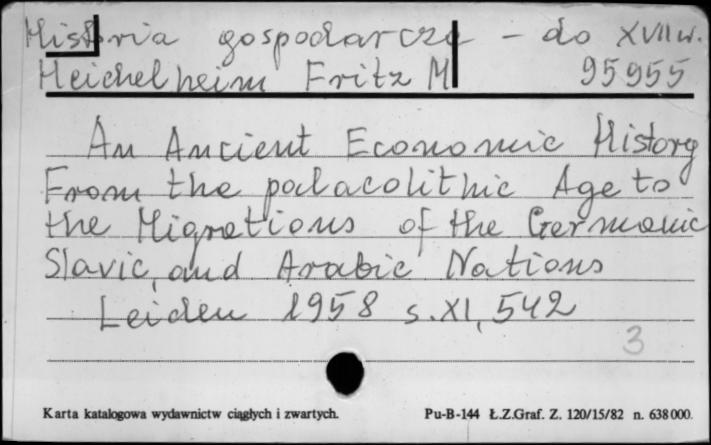 Historia gospodarcza - do XVII w.
Heichelheim Fritz M 95955
An Ancient Economic History
From the palaeolithic Age to
the Migrations of the Germanic
Slavic, and Arabic Nations
Leiden 1958 s. XI, 542
3
Karta katalogowa wydawnictw ciągłych i zwartych. Pu-B-144 Ł.Z.Graf. Z. 120/15/82 n. 638000.